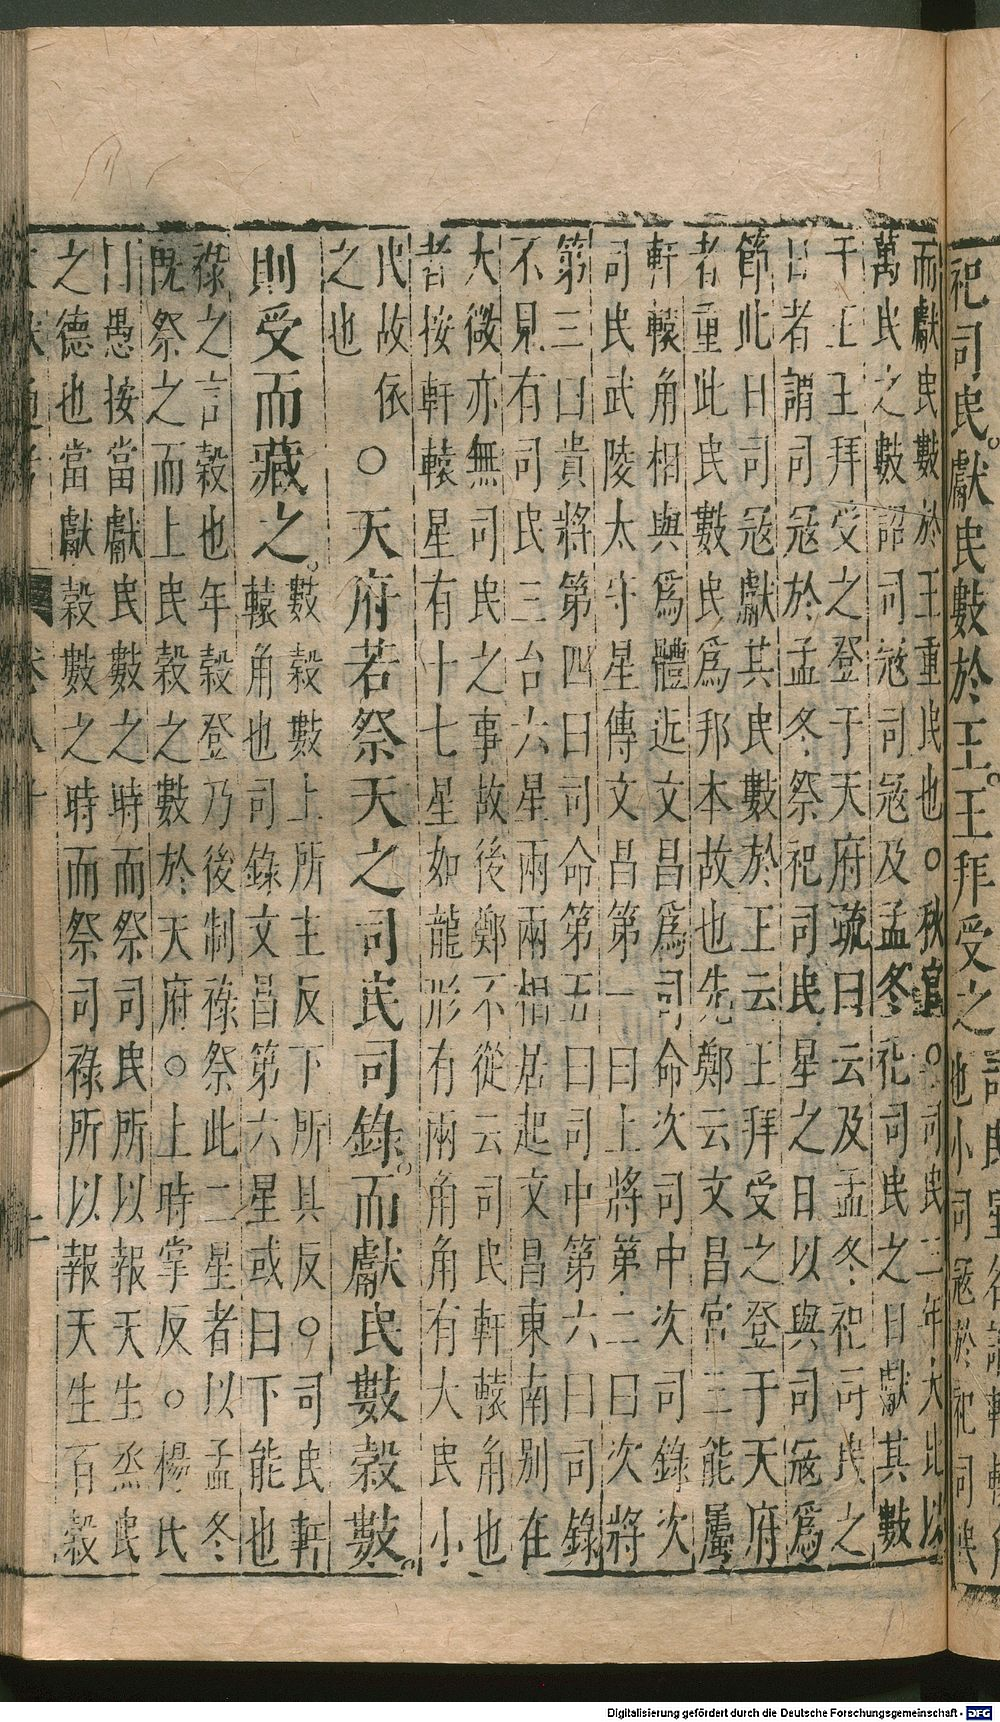 祀司民。獻民數於王。王拜受之
也小司寇於祀司民
而獻民數於王重民也○秋官○司民三年大比以
萬民之數詔司寇司寇及孟冬祀司民之日獻其數
于王王拜受之登于天府䟽曰云及孟冬祀司民之
日者謂司寇於孟冬祭祀司民星之日以與司寇爲
節此日司寇獻其民數於王云王拜受之登于天府
者重此民數民爲邦本故也先鄭云文昌宮三能屬
軒轅角相與爲體近文昌爲司命次司中次司錄次
司民武陵太守星傳文昌第一曰上將第二曰次將
第三曰貴將第四曰司命第五曰司中第六曰司錄
不見有司民三台六星兩兩相居起文昌東南別在
大微亦無司民之事故後鄭不從云司民軒轅角也
者按軒轅星有十七星如龍形有兩角角有大民小
民故依
之也
○天府若祭天之司民司錄。而獻民數穀數。
則受而藏之。
數穀數上所主反下所具反○司民軒
轅角也司錄文昌第六星或曰下能也
祿之言穀也年穀登乃後制祿祭此二星者以孟冬
既祭之而上民穀之數於天府○上時掌反○楊氏
曰愚按當獻民數之時而祭司民所以報天生烝民
之德也當獻穀數之時而祭司祿所以報天生百穀
Digitalisierung gefördert durch die Deutsche Forschungsgemeinschaft - DFG